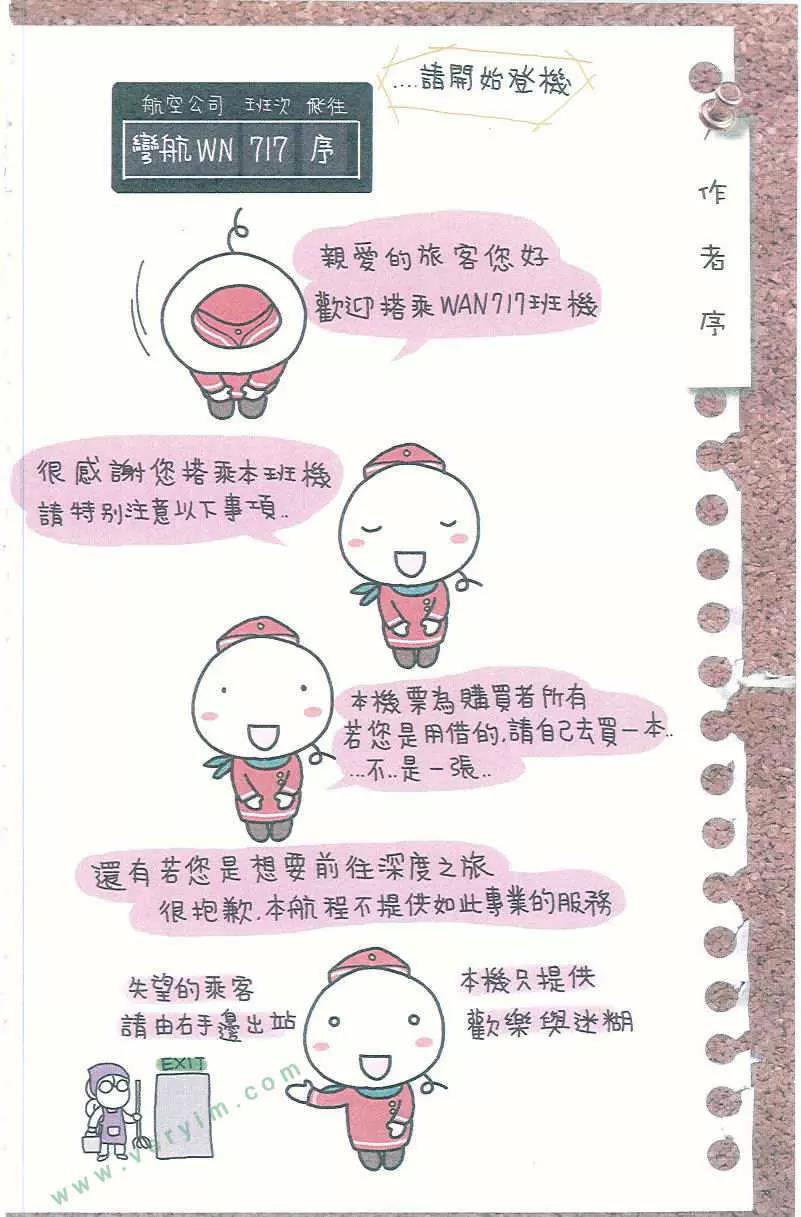 ....請開始登機
航空公司 班次 飛往
彎航WN 717 序
作者序
親愛的旅客您好
歡迎搭乘WAN717班機
很感謝您搭乘本班機
請特別注意以下事項..
本機票為購買者所有
若您是用借的,請自己去買一本..
...不..是一張..
還有若您是想要前往深度之旅
很抱歉,本航程不提供如此專業的服務
失望的乘客
請由右手邊出站
本機只提供
歡樂與迷糊
EXIT
www.veryim.com